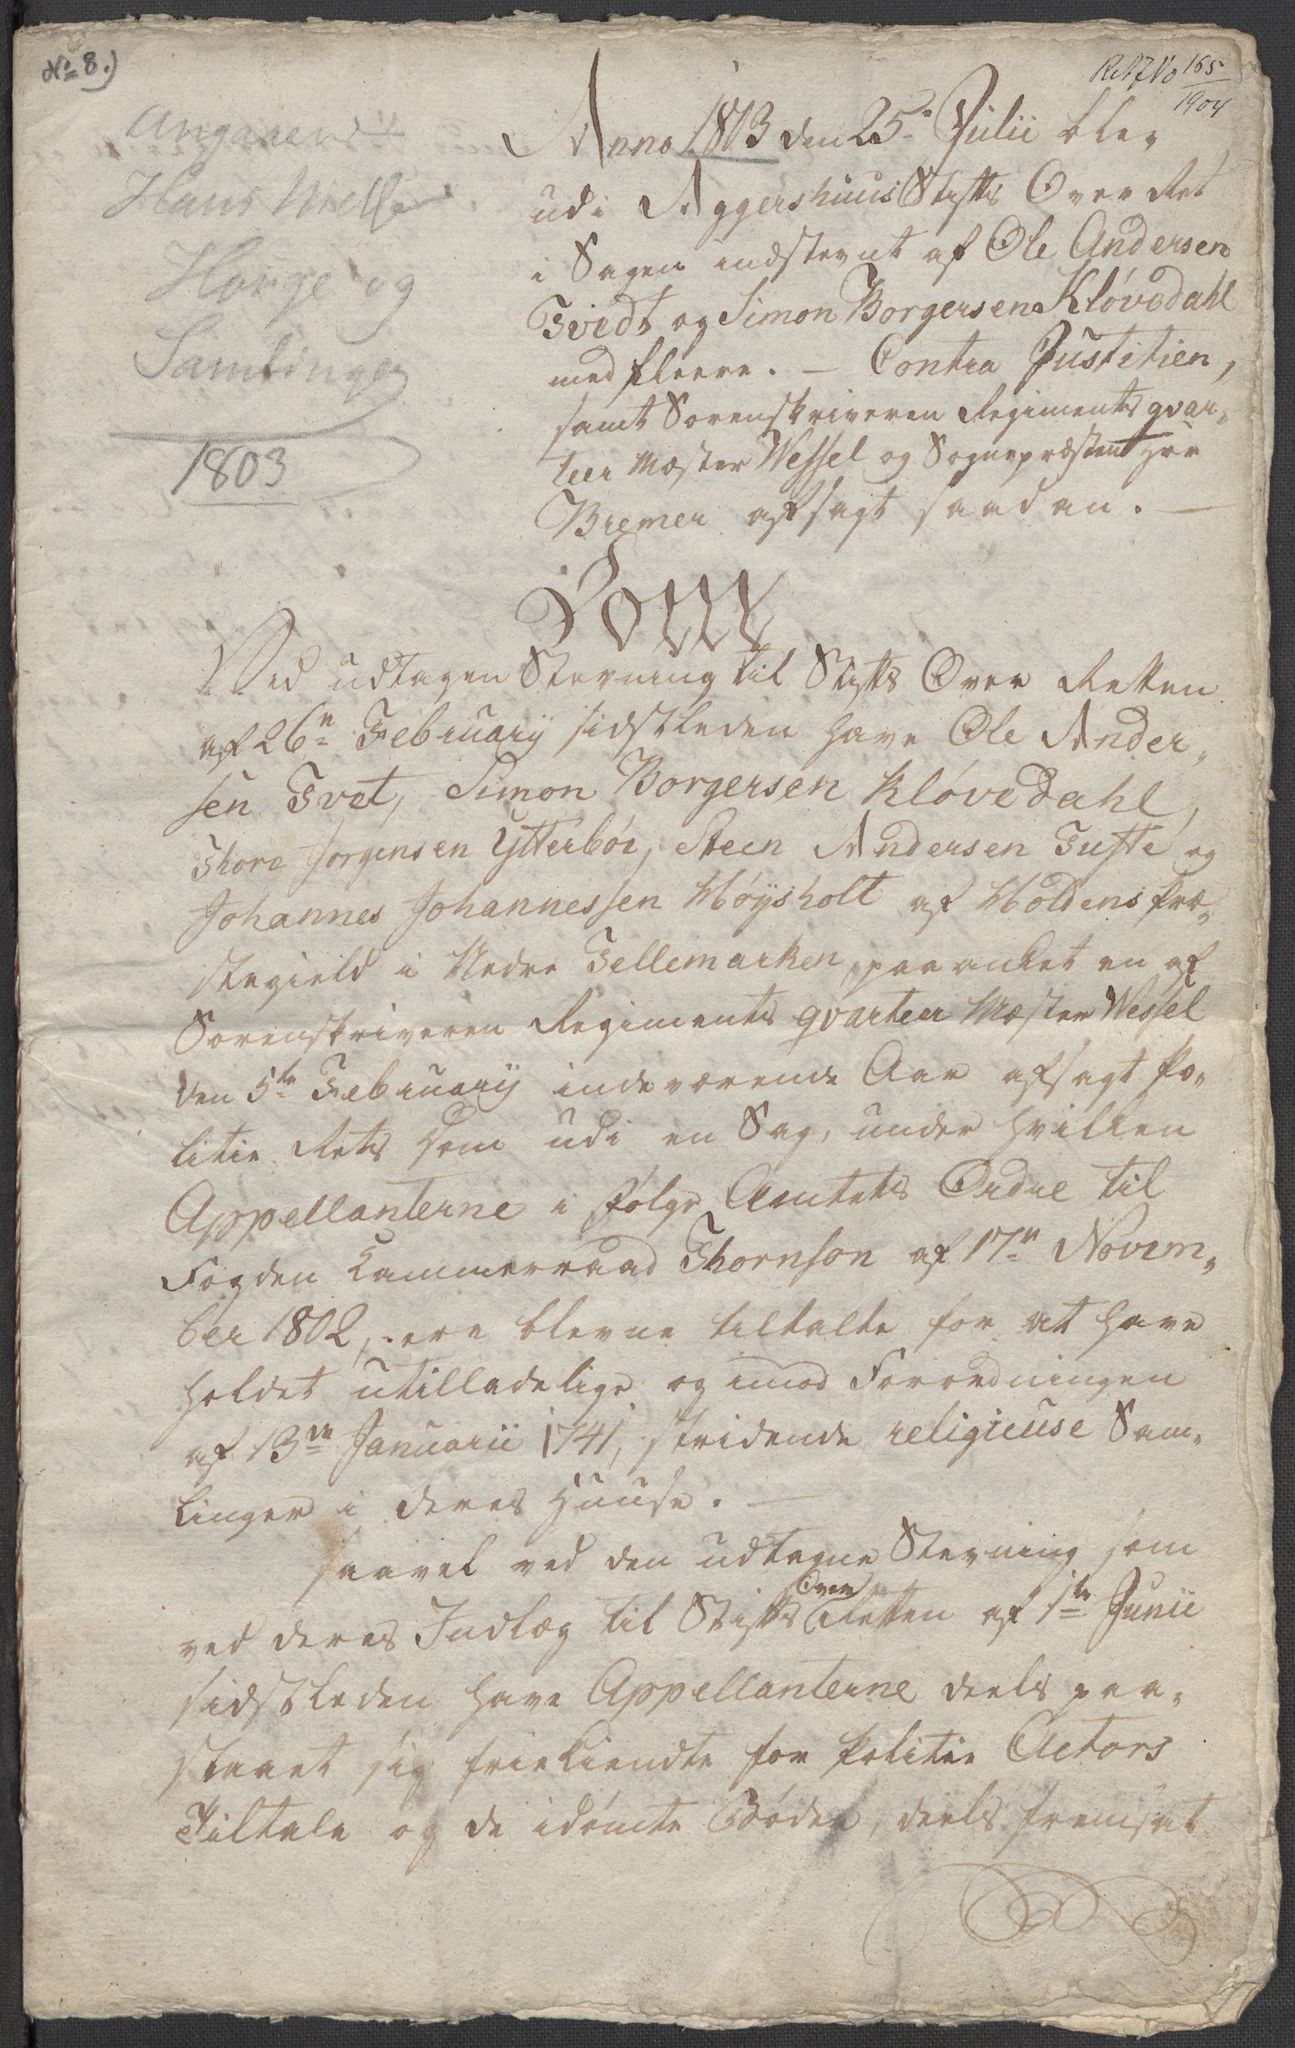 No 8.)
165
1904
Angaaende
Hans Nielsen
Hauge og
Samlinger
1803
Anno 1803 den 25de Julii blev
udi Aggershuus Stifts Over Ret
i Sagen indstevnt af Ole Andersen
Tvedt og Simon Borgersen Kløvedahl
med fleere. — Contra Justitien,
samt Sorenskriveren Regiments qvar-
teer Mæster Wessel og Sognepræsten Hrr
Bremer afsagt saadan. —
Dom
Ved udtagen Stevning til Stifts Over Retten
af 26de Februarij sidstleden have Ole Ander-
sen Tvet, Simon Borgersen Kløvedahl,
Thore Jørgensen Ytterböe, Steen Andersen Tufte og
Johannes Johannessen Höysholt af Holdens Præ-
stegield i Nedre Tellemarken, paaanket en af
Sorenskriveren Regiments qvarteer Mæster Wessel
den 5te Februarij indeværende Aar afsagt Po-
litie Rets Dom udi en Sag, under hvilken
Appellanterne i følge Amtets Ordre til
Fogden Kammerraad Thornson af 17de Novem-
ber 1802, ere blevne tiltalte for at have
holdet utilladelige og imod Forordningen
af 13de Januarii 1741, stridende religieuse Sam-
linger i deres Huuse. —
Saavel ved den udtagne Stevning som
ved deres Indlæg til Stifts Over Retten af 1ste Junii
sidstleden have Appellanterne deels paa-
staaet sig frikiendte for Politie Actors
Tiltale og de idømte Bøder, deels fremsat